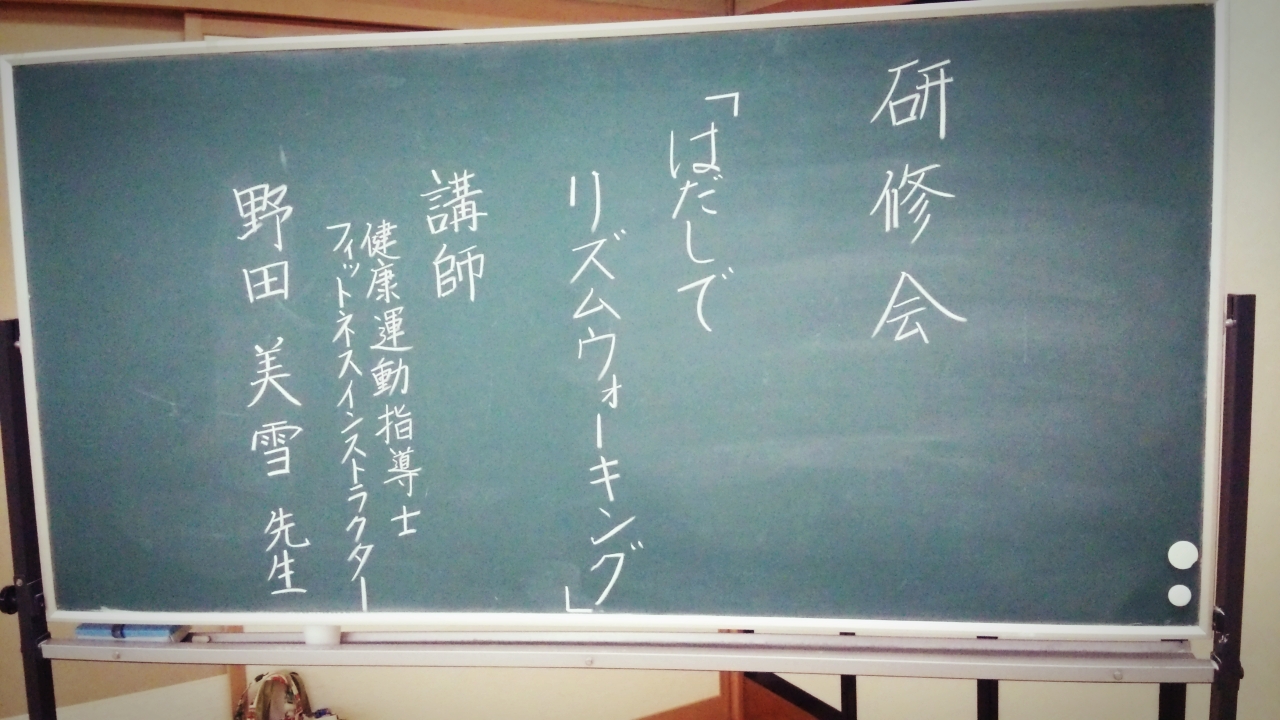 研修会
「はだしで
リズムウォーキング」
講師
健康運動指導士
フィットネスインストラクター
野田 美雪 先生